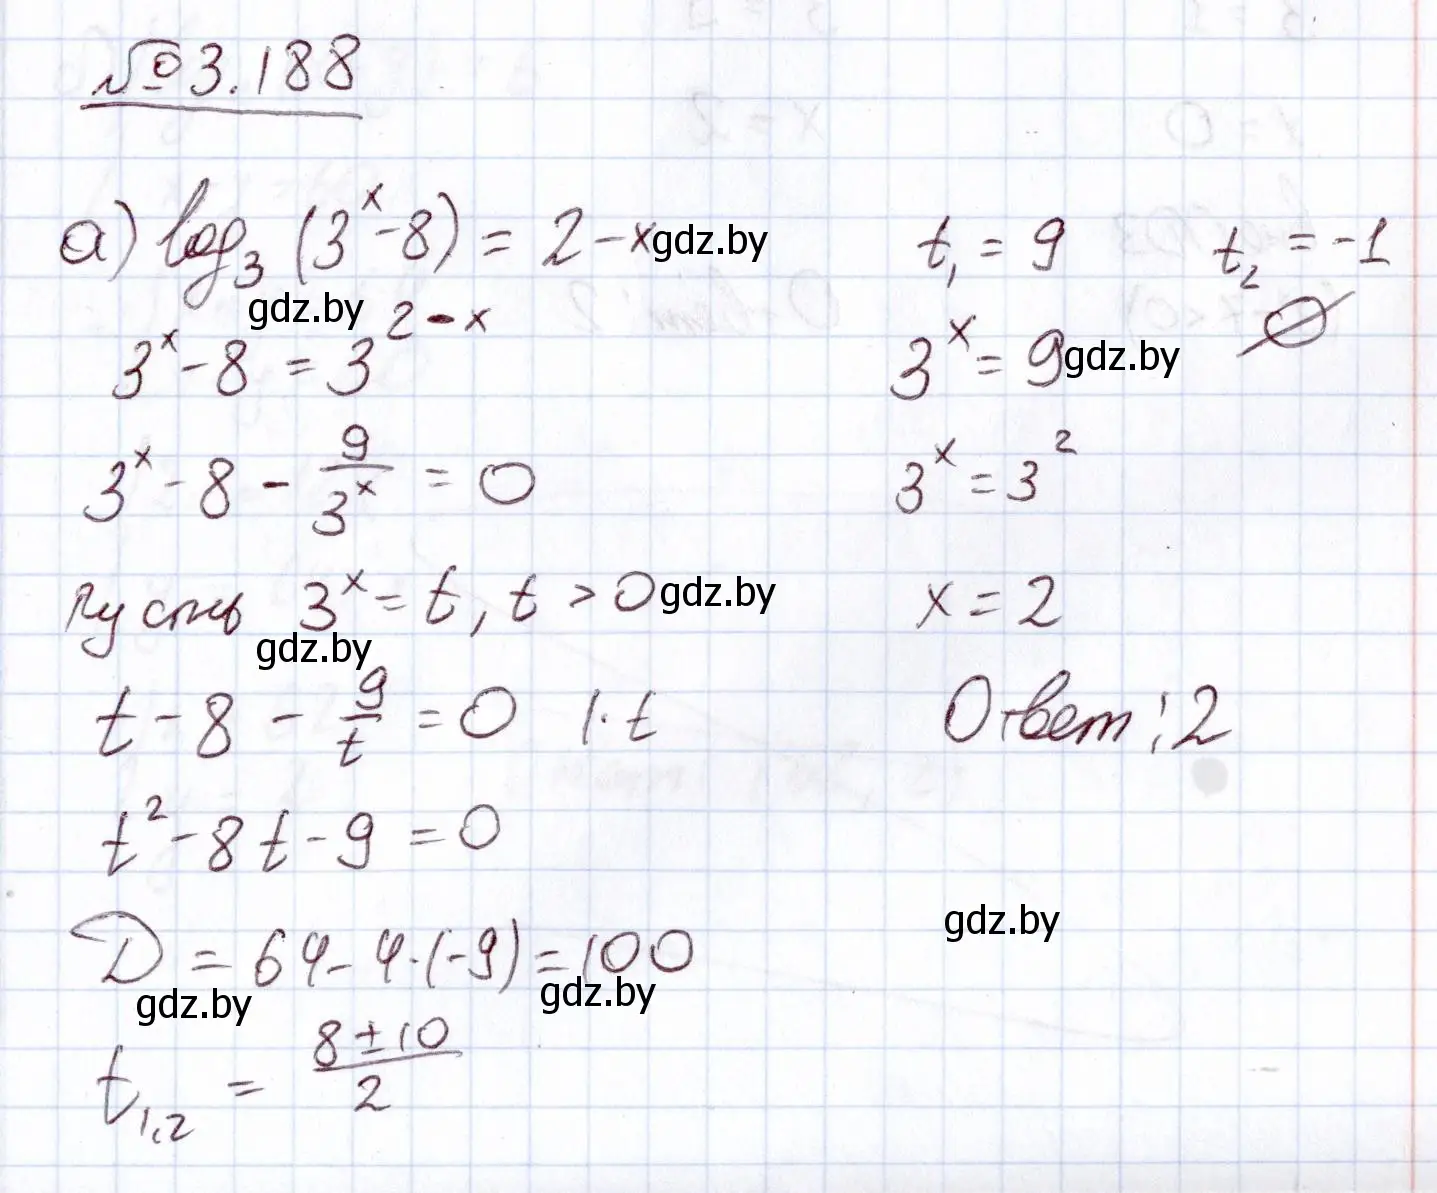 №3.188
а) log₃ (3ˣ - 8) = 2 - x gdz.by
gdz.by
3ˣ - 8 = 3²⁻ˣ
3ˣ - 8 - 9/3ˣ = 0
Пусть 3ˣ = t, t > 0 gdz.by
gdz.by
t - 8 - 9/t = 0 |·t
t² - 8t - 9 = 0
D = 64 - 4·(-9) = 100
gdz.by gdz.by
t₁,₂ = (8 ± 10)/2
t₁ = 9 t₂ = -1
3ˣ = 9 gdz.by ∅
3ˣ = 3²
x = 2
Ответ: 2
gdz.by